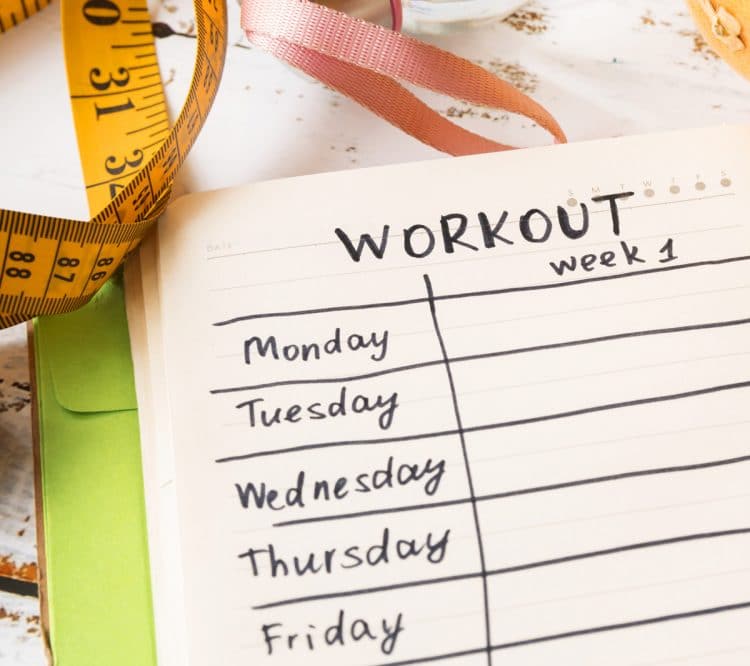 0
31
32
88
87
86
DATE
S M T W T F S
WORKOUT
week 1
Monday
Tuesday
Wednesday
Thursday
Friday